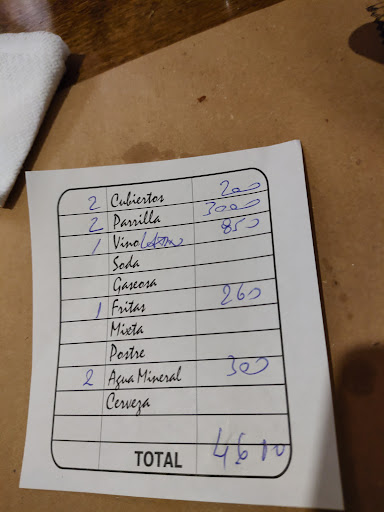 2 Cubiertos 200
2 Parrilla 3000
1 Vino 850
Soda
Gaseosa
1 Fritas 260
Mixta
Postre
2 Agua Mineral 300
Cerveza
TOTAL 4610